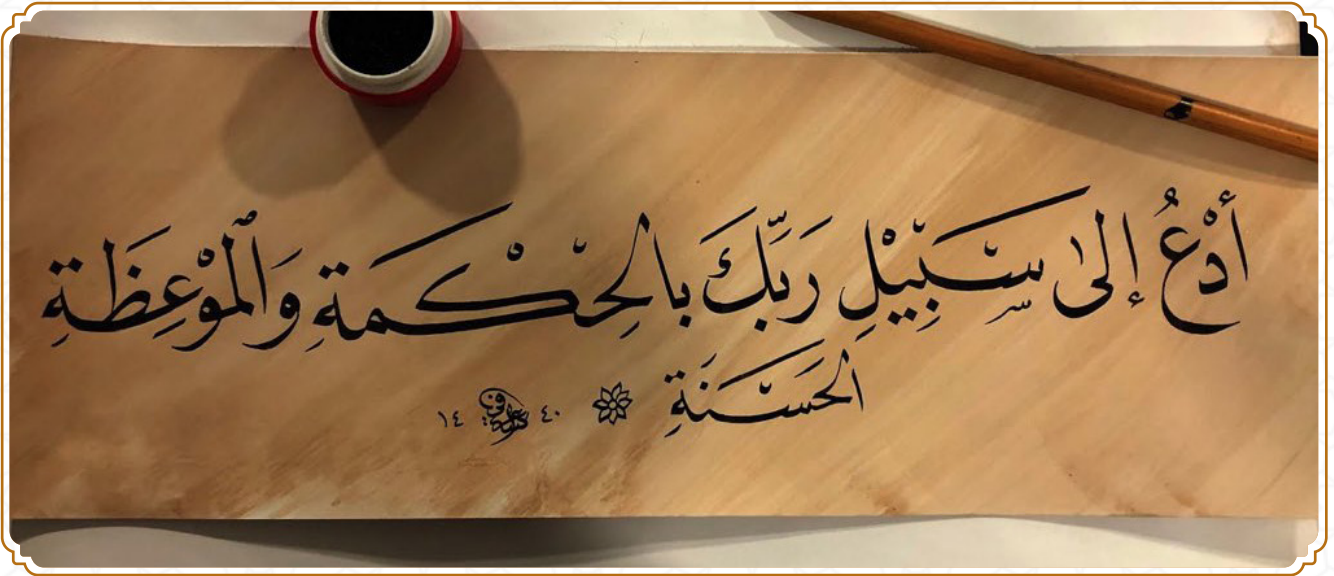 أُدْعُ إِلىٰ سَبِيْلِ رَبِّكَ بِالحِْكْمَةِ وَٱلْمَوْعِظَةِ
الحَسَنَةِ
١٤ ٤٠